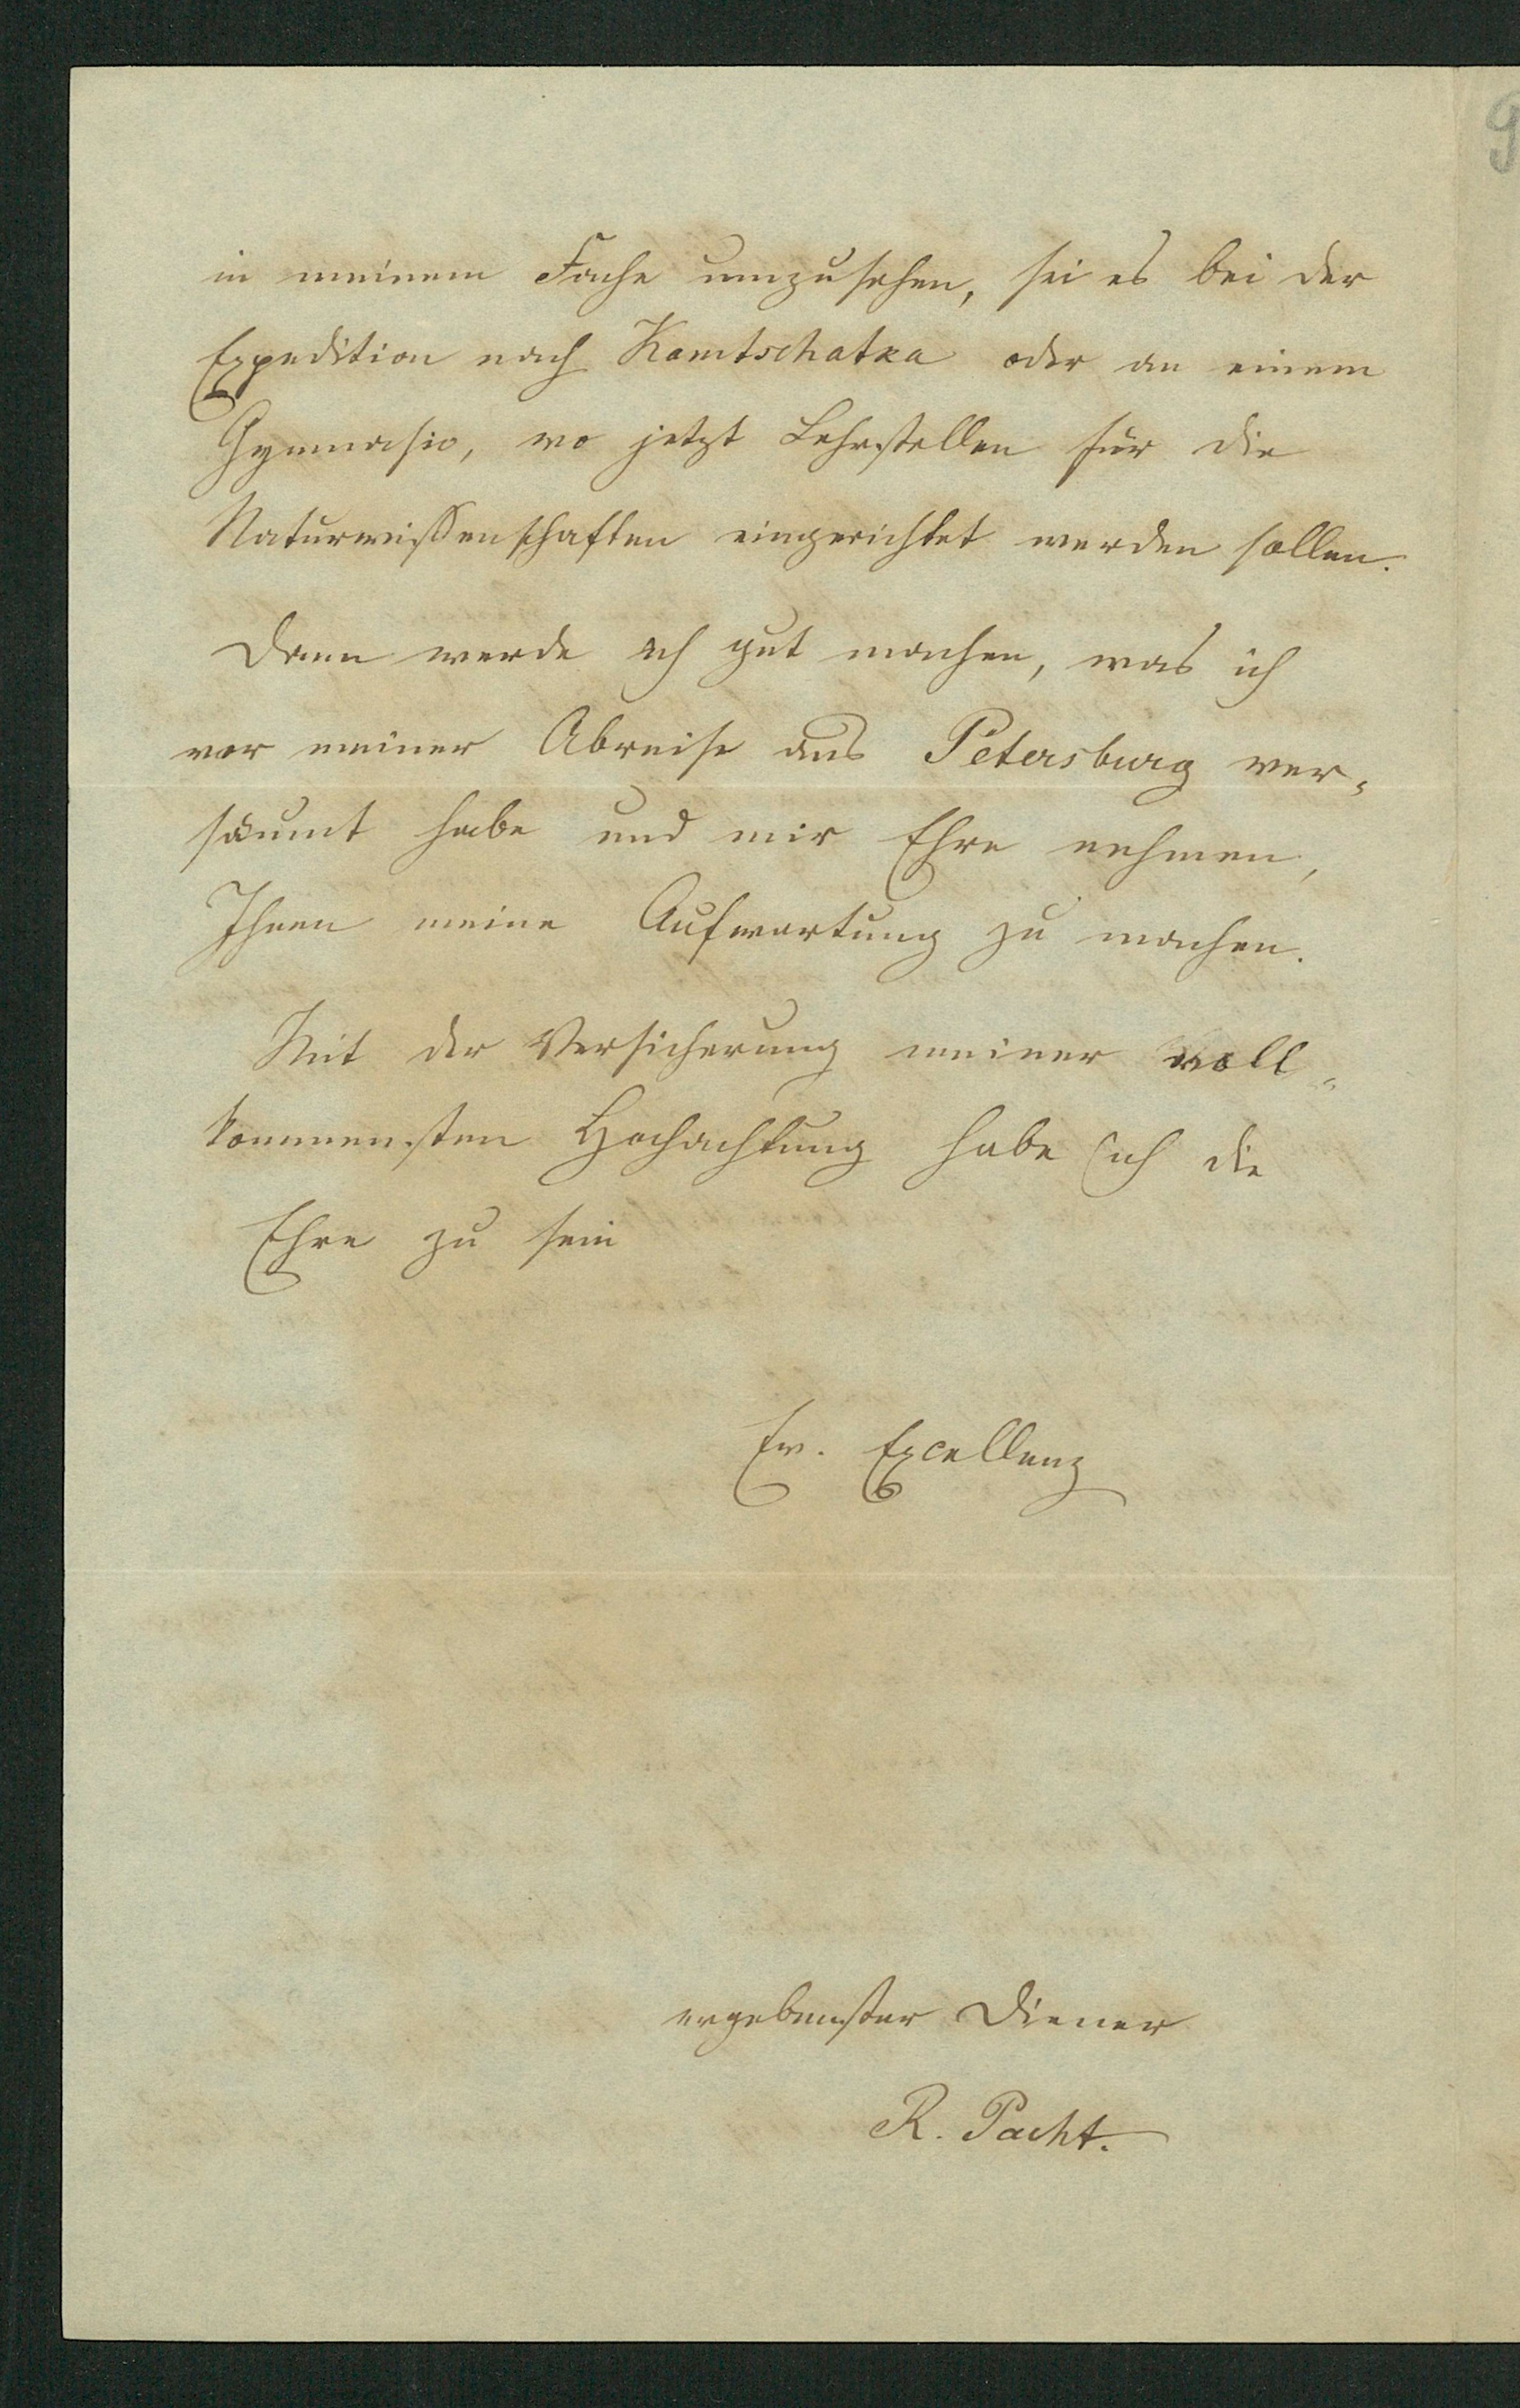 in meinem Fache umzusehen, sei es bei der
Expedition nach Kamtschatka oder an einem
Gymnasio, wo jetzt Lehrstellen für die
Naturwissenschaften eingerichtet werden sollen.
Dann werde ich gut machen, was ich
vor meiner Abreise aus Petersburg ver-
säumt habe und mir Ehre nehmen,
Ihnen meine Aufwartung zu machen.
Mit der Versicherung meiner voll-
kommensten Hochachtung habe ich die
Ehre zu sein
Ew. Excellenz
ergebenster Diener
R. Pacht.